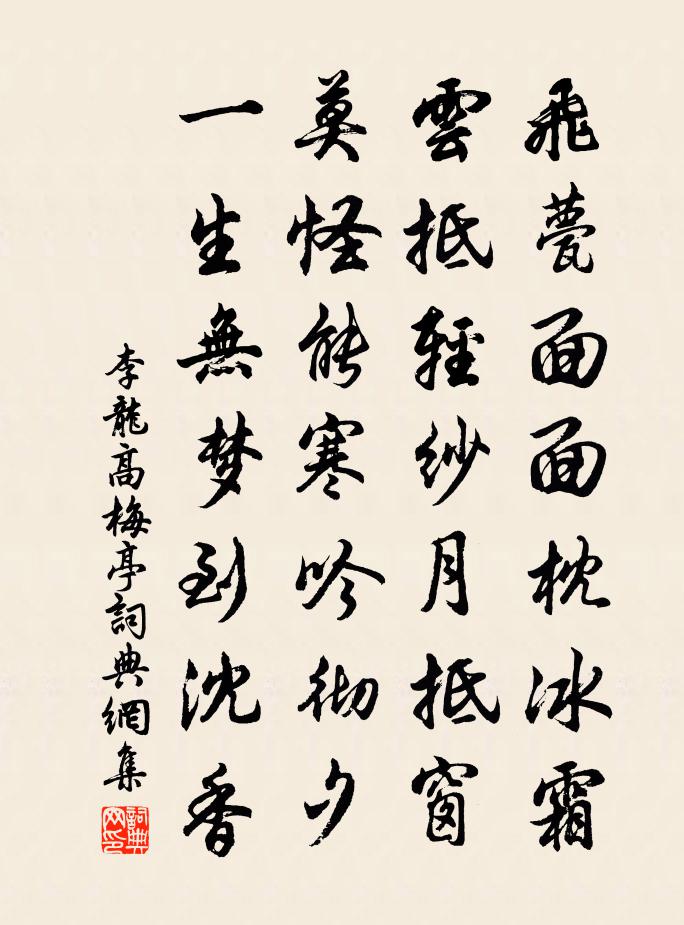 飛甍面面枕冰霜
雲抵輕紗月抵窗
莫怪能寒吟徹夕
一生無梦到沈香
李龍高梅亭詞典網集
詞典网印